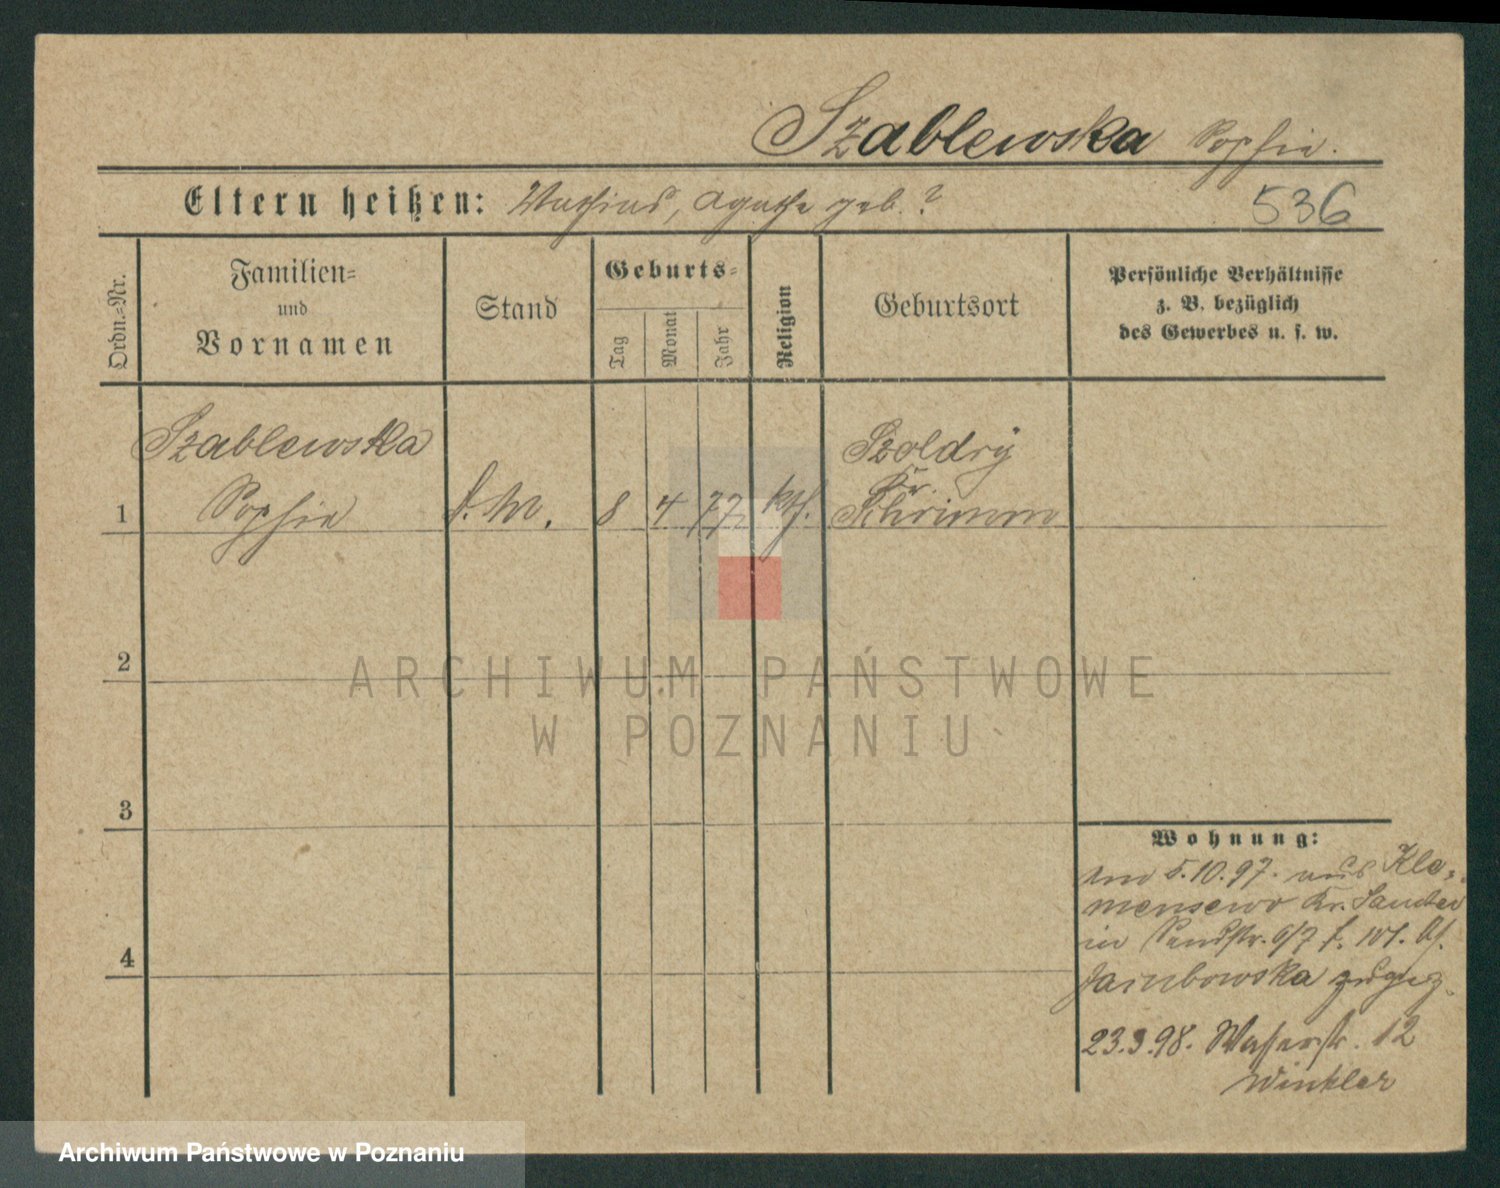 Szablewska Sophie.
Eltern heißen: Mathias, Agathe geb. ?
536
Ordn.-Nr.
Familien-
und
Vornamen
Stand
Geburts-
Tag
Monat
Jahr
Religion
Geburtsort
Persönliche Verhältnisse
z. B. bezüglich
des Gewerbes u. s. w.
Szablewska
Sophie
1
d. M.
8
4
77
kth.
Szoldry
Kr.
Schrimm
2
ARCHIWUM PAŃSTWOWE
W POZNANIU
3
4
Wohnung:
5.10.97. aus Kle-
mensewo Kr. Samter
in Sandstr. 6/7
Jakubowska zugez.
23.3.98. Wasserstr. 12
Winkler
Archiwum Państwowe w Poznaniu